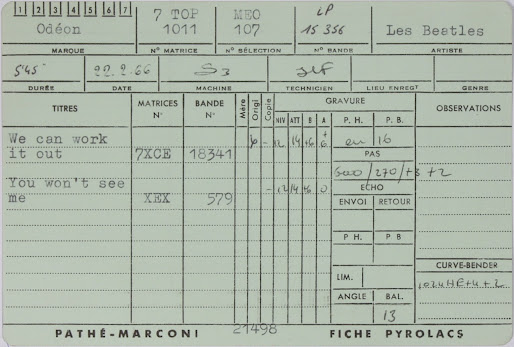 1 2 3 4 5 6 7
Odéon
7 TOP
1011
MEO
107
LP
15 356
Les Beatles
MARQUE
N° MATRICE
N° SÉLECTION
N° BANDE
ARTISTE
5'45
22.2.66
S3
DURÉE
DATE
MACHINE
TECHNICIEN
LIEU ENREGT
GENRE
TITRES
MATRICES
N°
BANDE
N°
Mère
Origl
Copie
GRAVURE
NIV ATT B A
P. H. P. B.
OBSERVATIONS
We can work
it out 7XCE 18341
- 12 14 +6 +6
en 16
PAS
500/270/+3 +2
ECHO
You won't see
me XEX 579
- 12 14 +6 0
ENVOI RETOUR
P H. P B
LIM.
CURVE-BENDER
ANGLE BAL.
13
PATHÉ-MARCONI 21498 FICHE PYROLACS